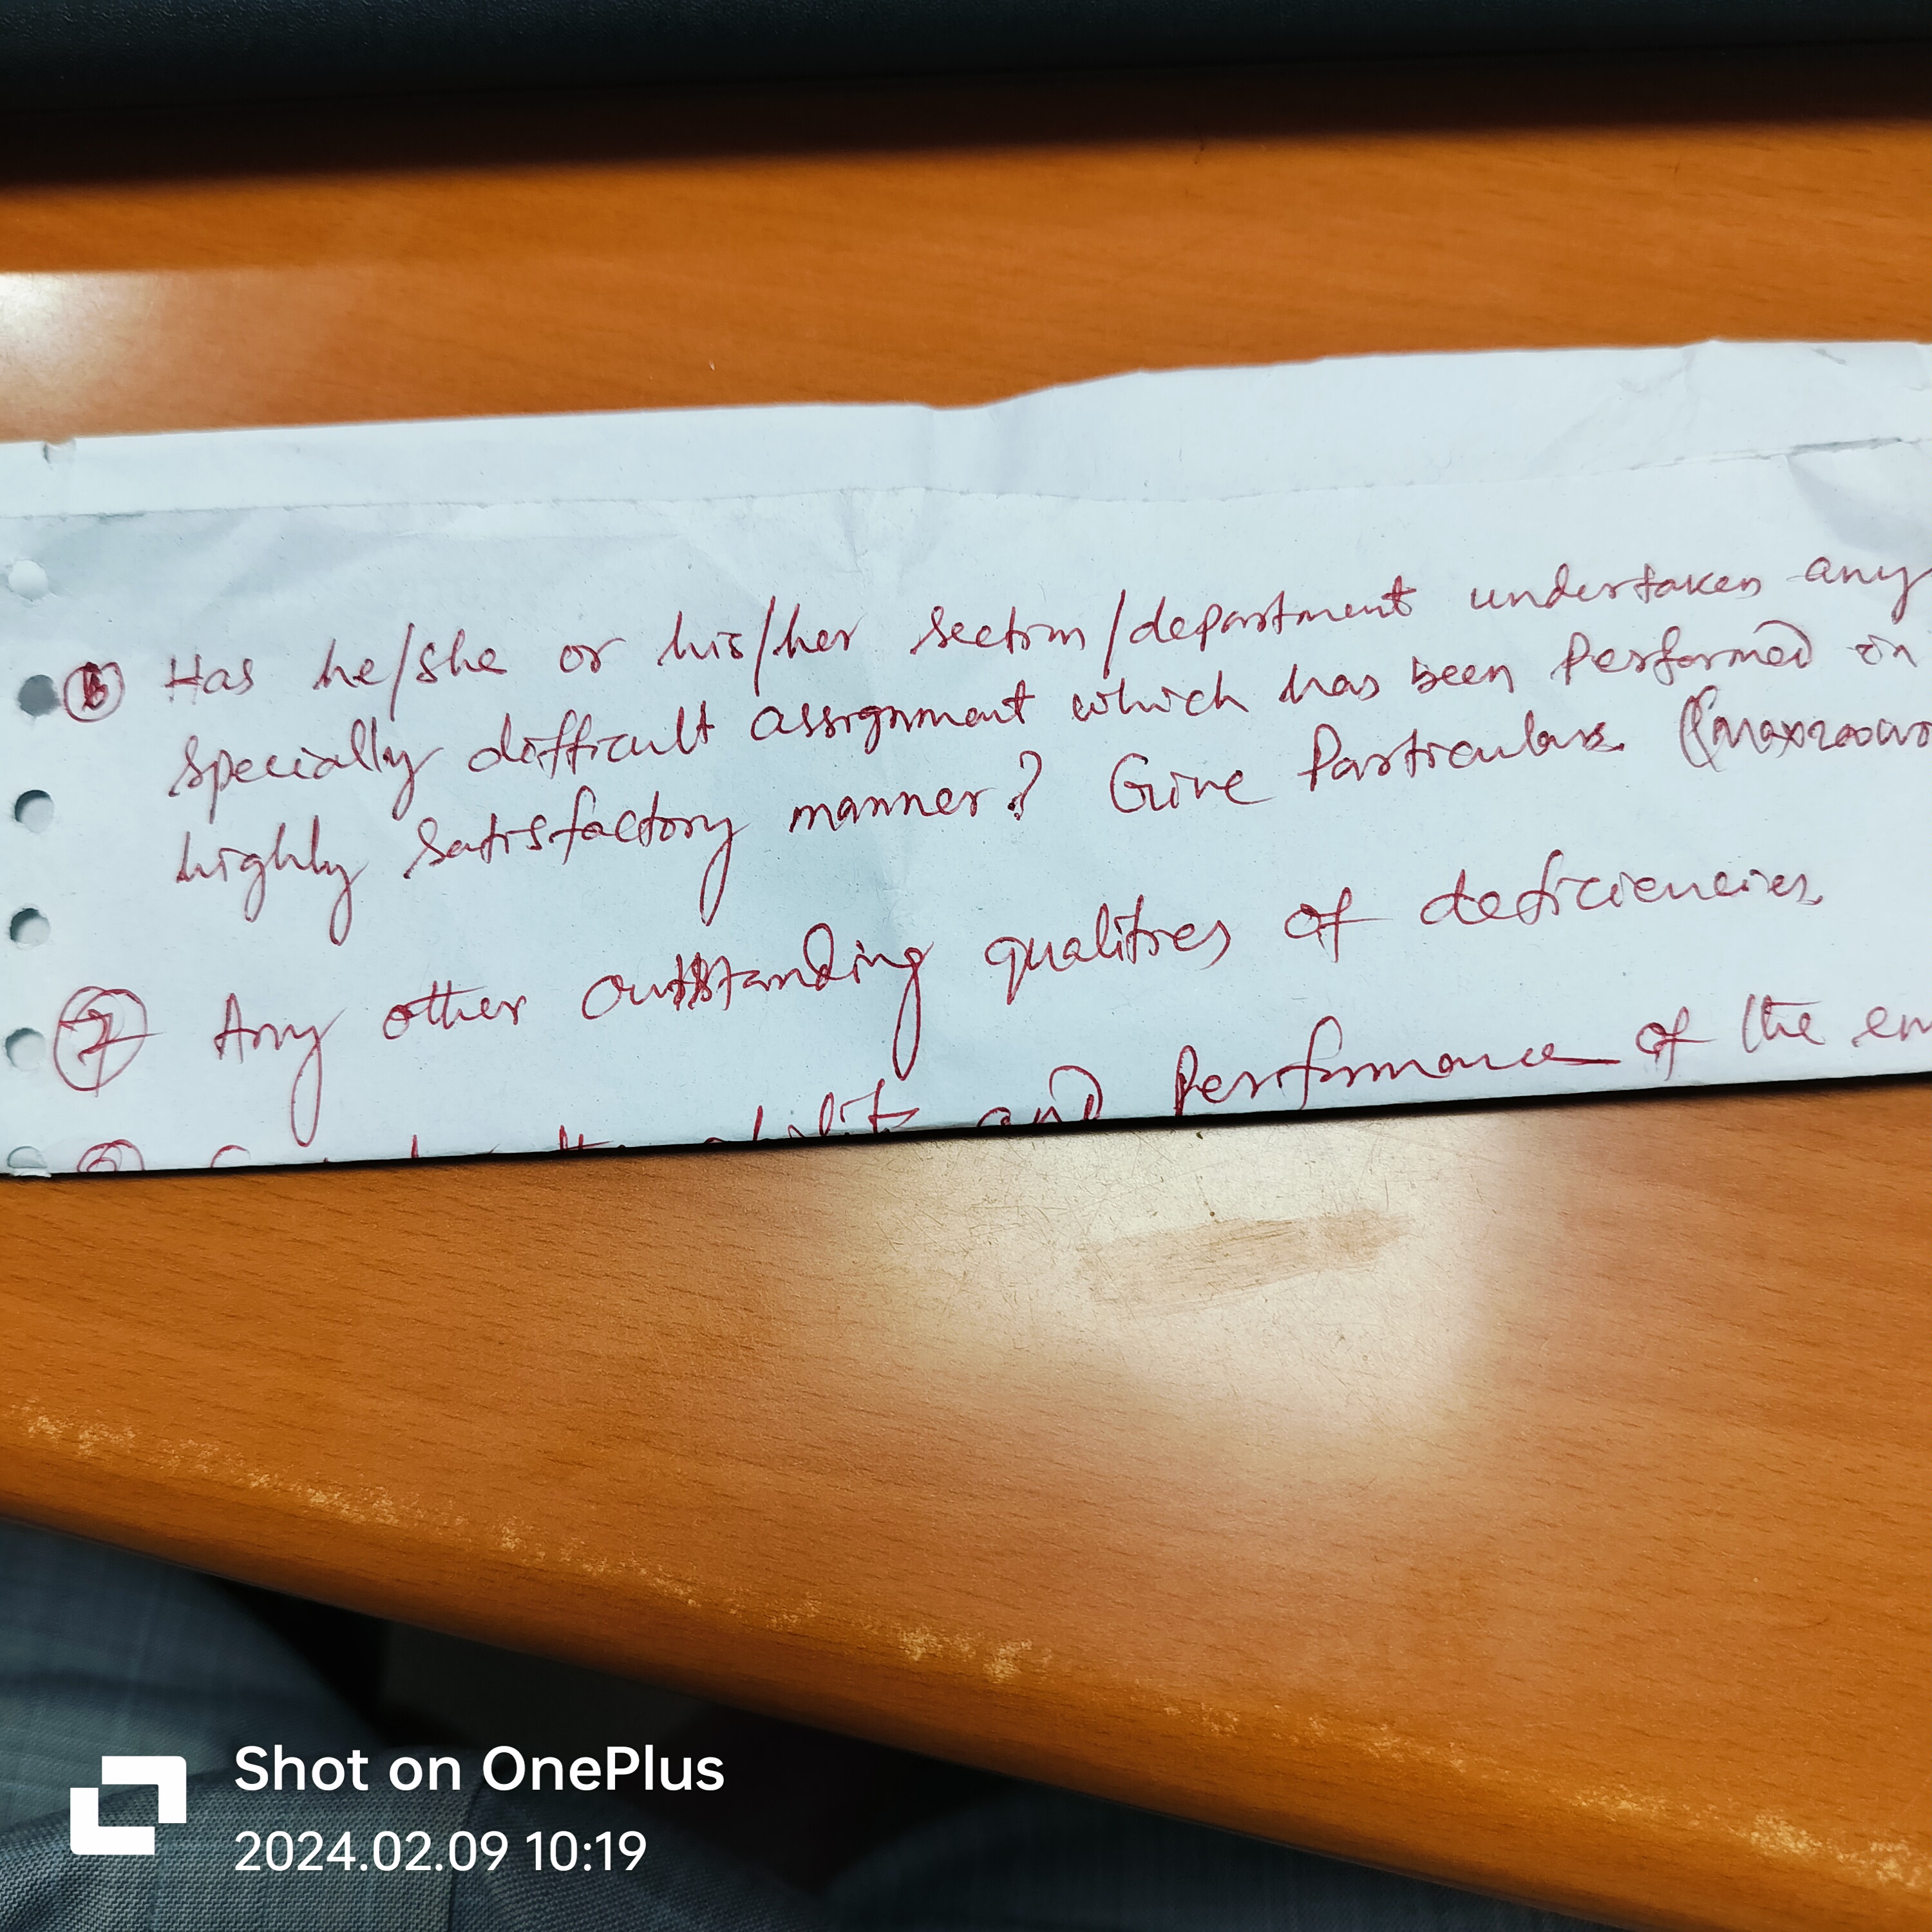 ⑥ Has he/she or his/her section/department undertaken any
specially difficult assignment which has been Performed in
highly satisfactory manner? Give Particulars. (max 200 wo
⑦ Any other outstanding qualities of deficiencies
and Performance of the em
Shot on OnePlus
2024.02.09 10:19